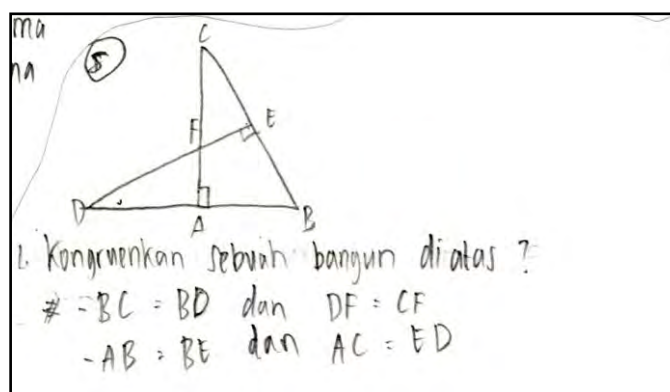 ma
na
5
C
F
E
D
A
B
1. Kongruenkan sebuah bangun diatas ?
# - BC = BD dan DF = CF
- AB = BE dan AC = ED